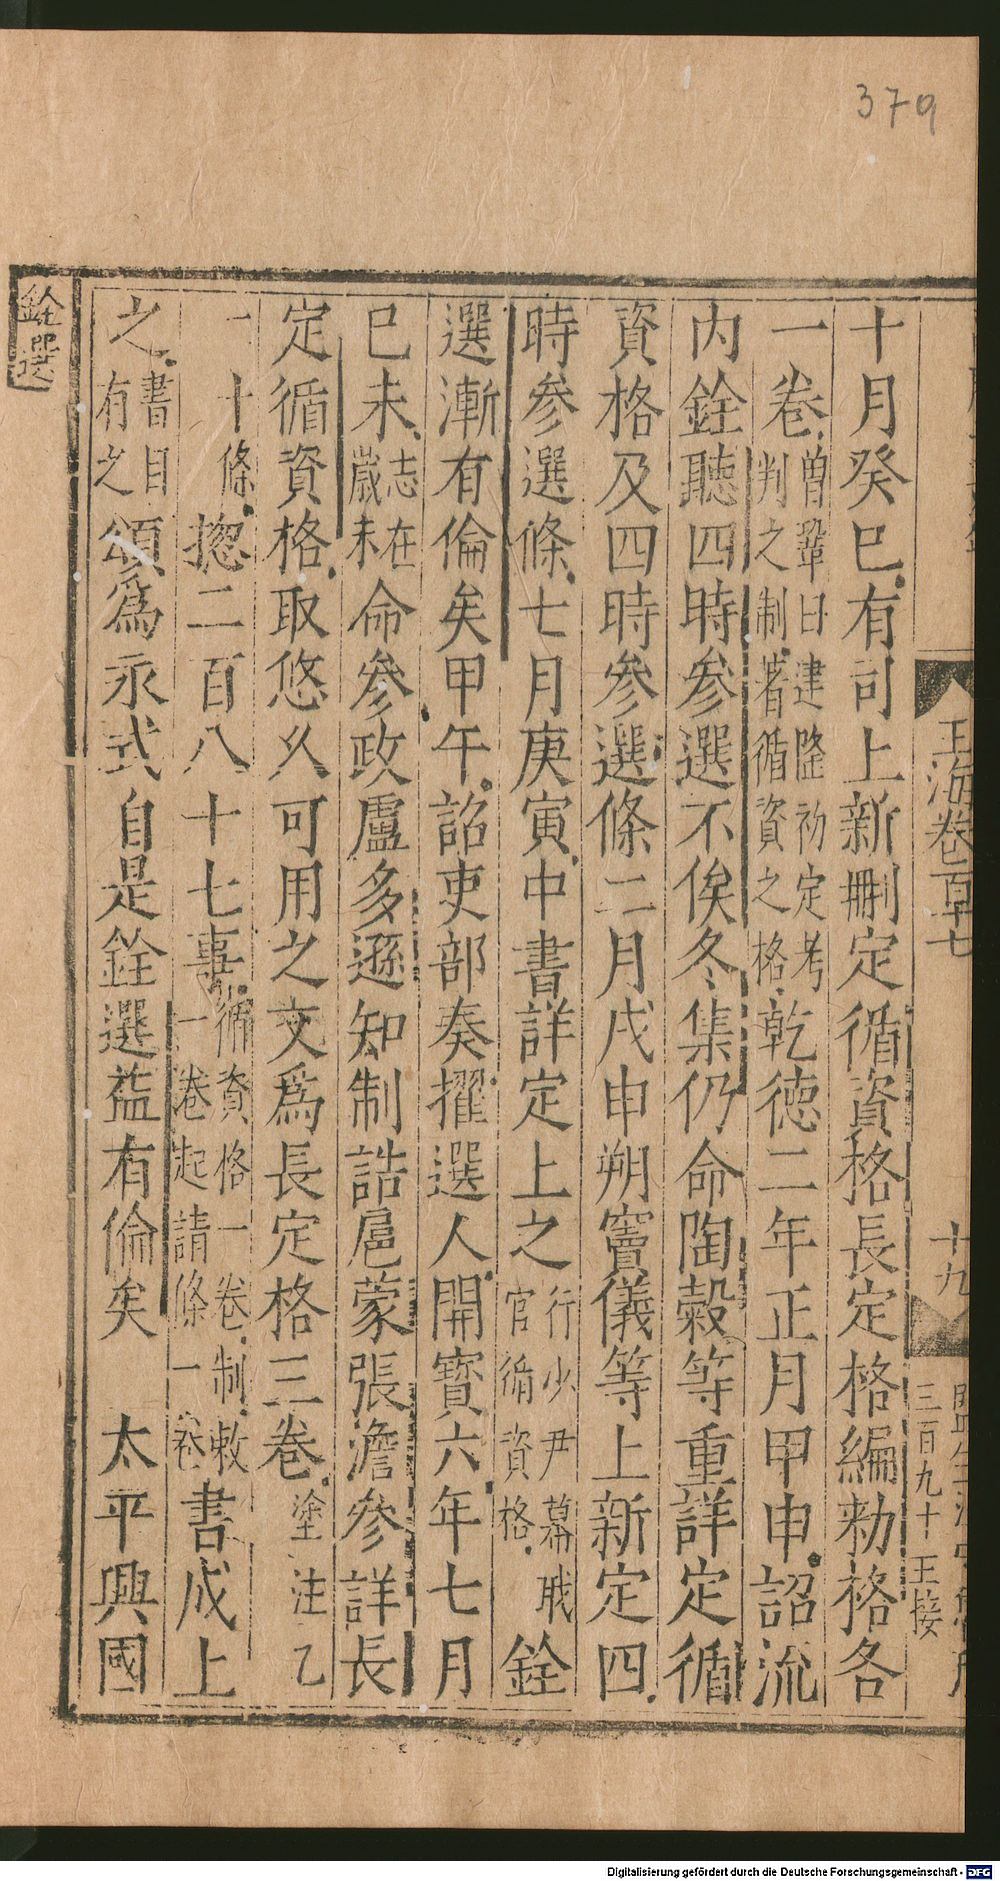 379
玉海卷百十七
十九
三百九十 王接
十月癸巳有司上新刪定循資格長定格編勑格各
一卷曾鞏曰建隆初定考判之制著循資之格乾德二年正月甲申詔流
内銓聽四時參選不俟冬集仍命陶糓等重詳定循
資格及四時參選條二月戊申朔竇儀等上新定四
時參選條七月庚寅中書詳定上之行少尹幕職官循資格銓
選漸有倫矣甲午詔吏部奏擢選人開寶六年七月
已未志在歲末命參政盧多遜知制誥扈蒙張澹參詳長
定循資格取悠久可用之文爲長定格三卷塗注乙
一十條揔二百八十七事循資格一卷制敕一卷起請條一卷書成上
之書目有之頌爲永式自是銓選益有倫矣 太平興國
銓選
Digitalisierung gefördert durch die Deutsche Forschungsgemeinschaft - DFG